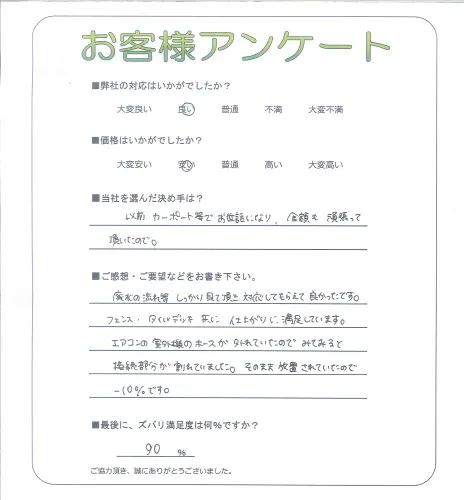 お客様アンケート
■弊社の対応はいかがでしたか？
大変良い 良い 普通 不満 大変不満
■価格はいかがでしたか？
大変安い 安い 普通 高い 大変高い
■当社を選んだ決め手は？
以前 カーポート等で お世話になり、金額も 頑張って
頂いたので。
■ご感想・ご要望などをお書き下さい。
廃水の流れ等 しっかり見て頂き 対応してもらえて 良かったです。
フェンス・タイルデッキ 共に 仕上がりに満足しています。
エアコンの室外機のホースが 外れていたので みてみると
接続部分が割れていました。そのまま放置されていたので
-10%です。
■最後に、ズバリ満足度は何%ですか？
90 %
ご協力頂き、誠にありがとうございました。